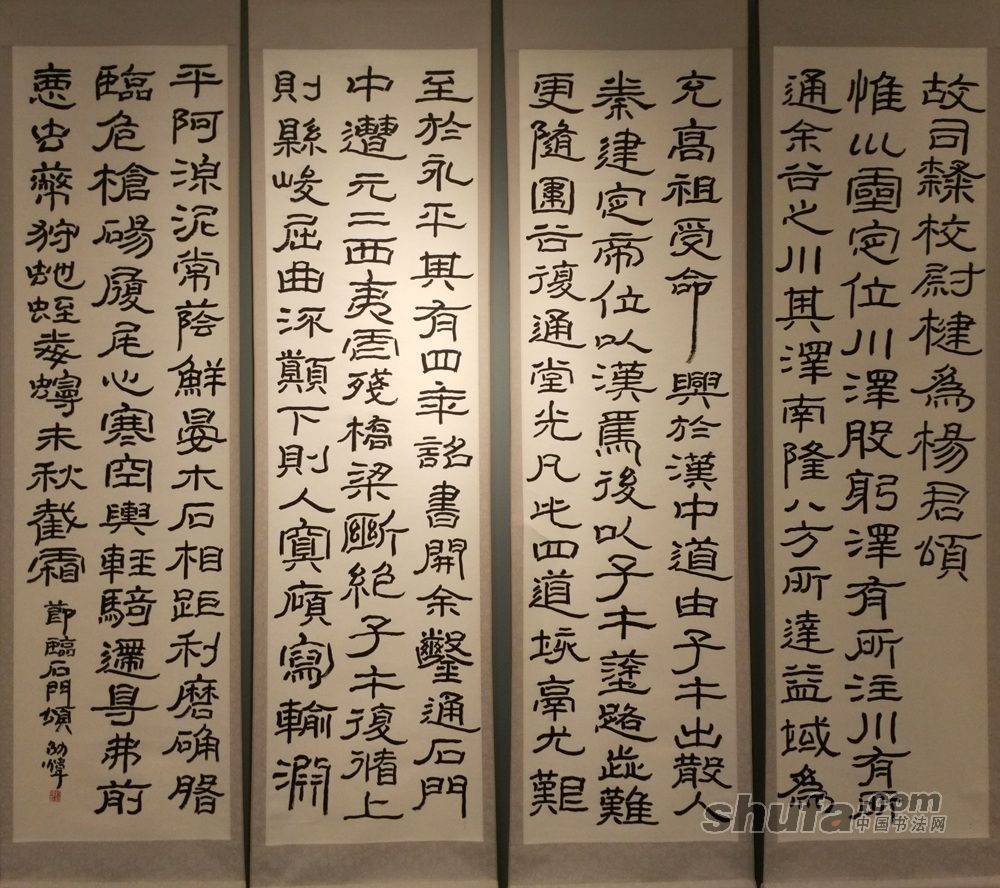 故司隸校尉楗為楊君頌
惟以靈定位川澤股躬澤有所注川有所
通余谷之川其澤南隆八方所達益域為
充高祖受命興於漢中道由子午出散入
秦建定帝位以漢焉後以子午塗路歮難
更隨圍谷復通堂光凡此四道垓鬲尤艱
至於永平其有四年詔書開余鑿通石門
中遭元二西夷虐殘橋梁斷絕子午復循上
則縣峻屈曲流顛下則入寞廎寫輸淵
平阿湶泥常蔭鮮晏木石相距利磨确
臨危槍碭履尾心寒空輿輕騎遰㝵弗前
惡虫狩虵蛭毒蟃未秋截霜
節臨石門頌
shufa.com
中国书法网